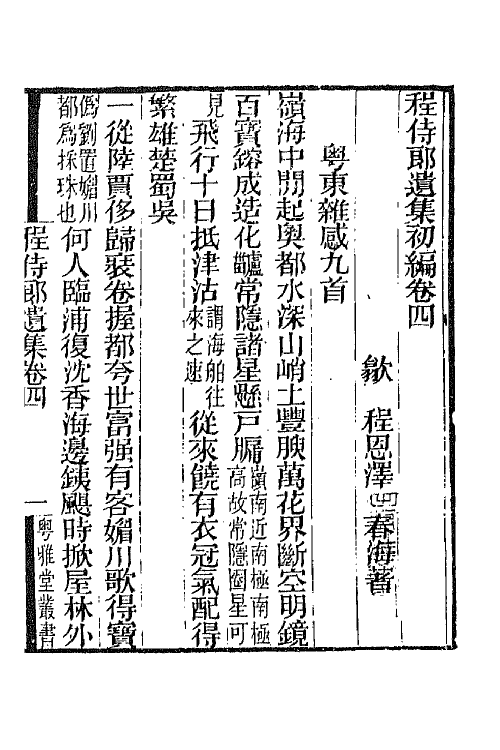 程侍郎遺集初編卷四
歙 程恩澤 春海著
粵東雜感九首
嶺海中開起奧都水深山峭土豐腴萬花界斷空明鏡
百寶鎔成造化鑪常隱諸星懸戶牖嶺南近南極南極高故常隱圈星可
見飛行十日抵津沽謂海舶往來之速從來饒有衣冠氣配得
繁雄楚蜀吳
一從陸賈侈歸裝卷握都夸世富强有客媚川歌得寶
僞劉置媚川都爲採珠也何人臨浦復沈香海邊銕颶時掀屋林外
程侍郎遺集卷四 一 粵雅堂叢書